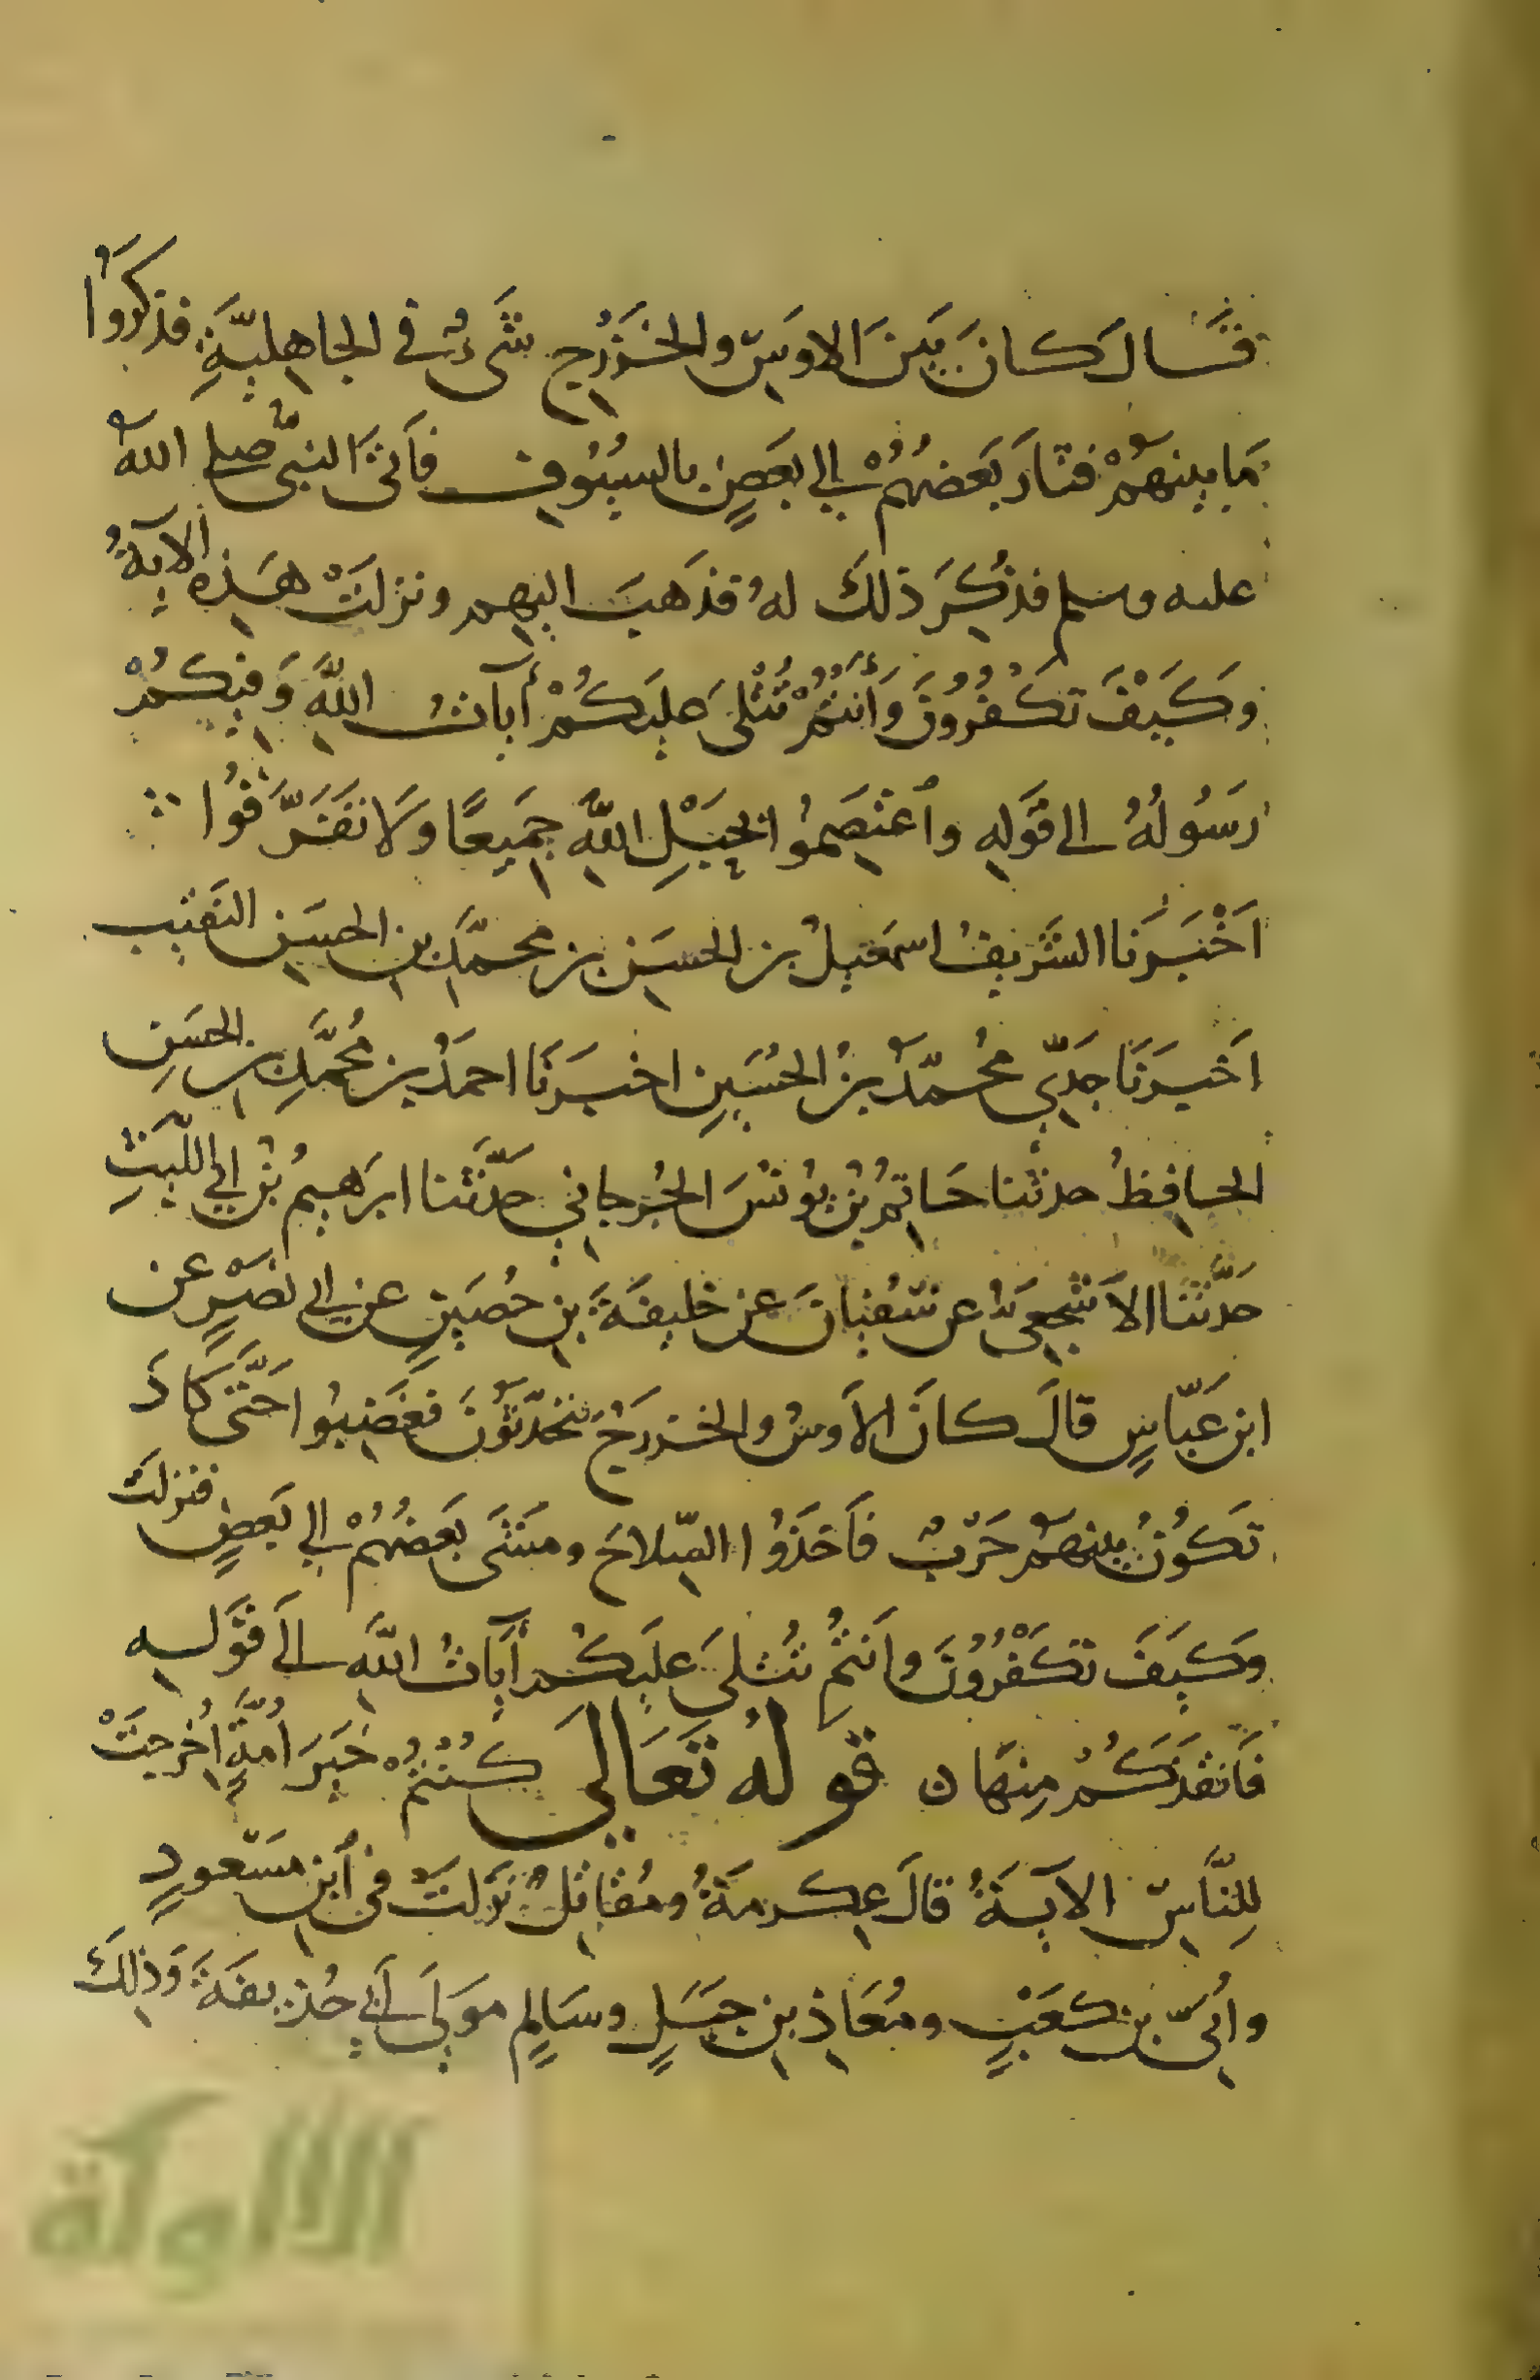 قَالَ كانَ بَينَ الاوسِ والخَزْرَجِ شَىءٌ في الجاهِليَّةِ فذكروا
مَا بينهُمْ فثارَ بَعضُهُمْ الي بَعضٍ بالسيُوفِ فأتَى النبيُّ صلى اللهُ
عليه وسلم فذُكِرَ ذلكَ لهُ فذَهبَ اليهِم ونزلَتْ هَذِهِ الآيةُ
وَكَيْفَ تَكْفُرُونَ وَأَنْتُمْ تُتْلىَ عَليَكُمْ آيَاتُ اللَّهِ وَفِيكُمْ
رَسُولُهُ الى قَوَلِهِ وٱعْتَصِمُوا بِحَبْلِ اللَّهِ جَمِيعًا وَلاَ تَفَرَّقُوا
اَخْبَرَنا الشَّرِيفُ اسمَعيلُ بن الحسَنِ بن محمَّدِ بنِ الحسَينِ النَقيبِ
اَخبرَنَا جَدِّي مُحمَّدُ بنُ الحُسَينِ اخبرَنَا احمَدُ بن مُحمَّدِ بن الحسَنِ
الحافِظُ حدثنا حَاتِمُ بْنُ يوُنُسَ الجُرجاني حدَّثَنا ابرَهيمُ بْنُ ابي اللَّيثِ
حَدَّثَنَا الاَشْجعِىُّ عن سُفيانَ عن خليفَةَ بنِ حُصَينٍ عن ابي نَصْرٍ عن
ابنِ عَبّاسٍ قالَ كانَ الاَوسُ والخزرَجُ يتحَدَّثوُنَ فغَضِبُوا حَتَّى كادَ
تَكُونُ بينَهُمْ حَرْبٌ فأَخَذُوا السِّلاحَ ومَشَى بَعضُهُمْ الي بَعضٍ فنزلَتْ
وَكَيفَ تَكْفُرُونَ وانتُم تُتْلىَ عليَكُم آيَاتُ اللَّهِ الى قَوَلِهِ
فأَنقَذَكُمْ مِنهَا ن قولُهُ تَعَالىَ كُنتُمْ خَيرَ اُمَّةٍ اُخرِجَتْ
لِلنَّاسِ الآيَةُ قالَ عِكرمَةُ ومُقاتِلُ نزَلَتْ في ٱبنِ مَسْعودٍ
واُبيِّ بن كعَبٍ ومُعَاذِ بنِ جبَلٍ وسَالِمٍ موَلَى أَبي حُذَيفَةَ وَذلِكَ
الألوكة